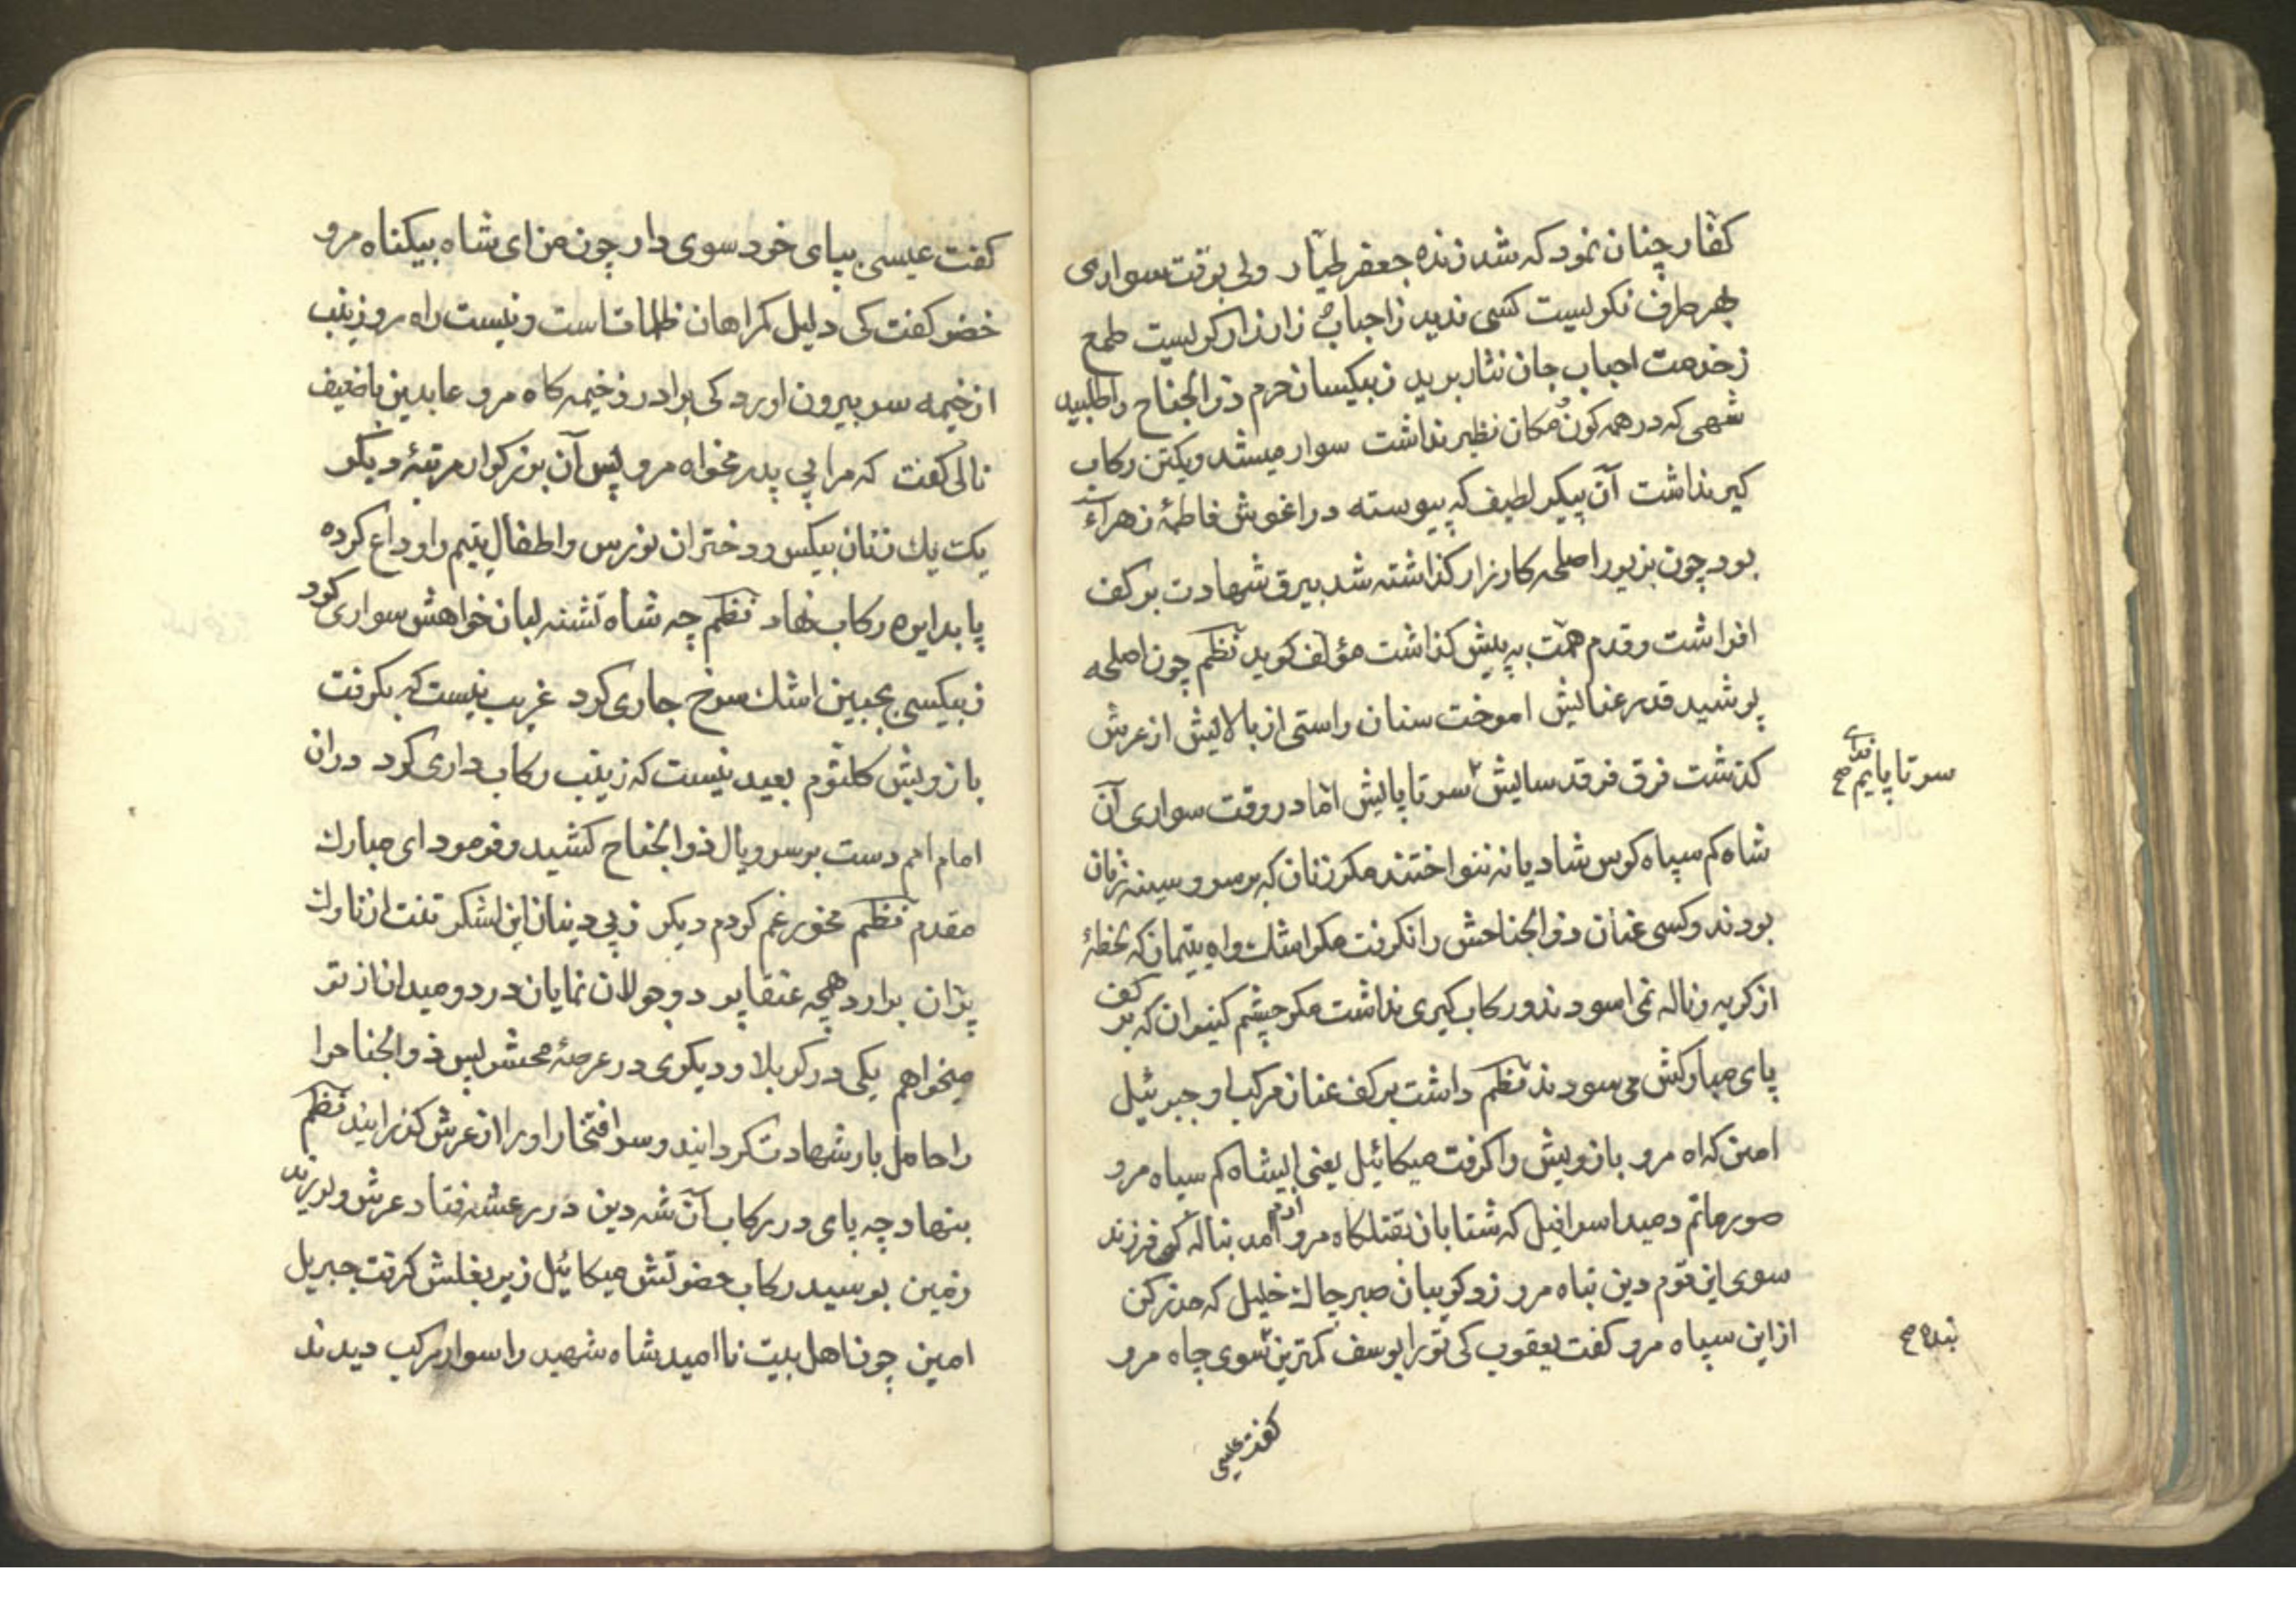 کفار چنان نمود که شد زنده جعفر طیار ولی بوقت سواری
بهر طرف نکریست کسی ندید ز احباب زار زار کریست طمع
ز خدمت احباب جان نثار برید ز بیکسان حرم ذوالجناح را طلبید
شهی که در همه کون و مکان نظیر نداشت سوار میشد و یکتن رکاب
کیر نداشت آن پیکر لطیف که پیوسته در اغوش فاطمهٔ زهراء
بود چون بزیور اصلحه کارزار کذاشته شد بیرق شهادت بر کف
افراشت و قدم همت به پیش کذاشت مؤلف کوید نظم چون اصلحه
پوشید قد رعنایش اموخت سنان راستی از بالایش از عرش
کذشت فرق فرقد سایش سر تا پایش اما در وقت سواری آن
سر تا پایم فدای صح
شاه کم سپاه کوس شادیانه ننواختند مکر زنان که بر سر و سینه زنان
بودند و کسی عنان ذوالجناحش را نکرفت مکر اشک و اه یتیمان که لحظهٔ
از کریه و ناله نمی اسودند و رکاب کیری نداشت مکر چشم کنیزان که بر کف
پای مبارکش می سودند نظم داشت بر کف عنان مرکب او جبرئیل
امین که اه مرو بازویش را کرفت میکائیل یعنی ایشاه کم سپاه مرو
صور ماتم دمید اسرافیل که شتابان بقتلکاه مرو آدم آمد بناله کی فرزند
سوی این قوم دین تباه مرو زد کریبان صبر چاک خلیل که حذر کن
از این سپاه مرو کفت یعقوب کی تو را یوسف کمترین سوی چاه مرو
بنده صح
کفت عیسی
کفت عیسی بپای خود سوی دار چون من ای شاه بیکناه مرو
خضر کفت کی دلیل کمراهان ظلمات است و نیست راه مرو زینب
از خیمه سر بیرون اورد کی برادر ز خیمه کاه مرو عابدین با ضعیف
نالی کفت که مرا بی پدر مخواه مرو پس آن بزرکوار مرتبهٔ دیکر
یک یک زنان بیکس و دختران نورس و اطفال یتیم را وداع کرده
پا بدایره رکاب نهاد نظم چه شاه تشنه لبان خواهش سواری کرد
ز بیکسی بجبین اشک سرخ جاری کرد غریب نیست که بکرفت
بازویش کلثوم بعید نیست که زینب رکاب داری کرد دران
امام امم دست بر سر و یال ذوالجناح کشید و فرمود ای مبارک
مقدم نظم مخور غم کردم دیکر ز پی دینان این لشکر تنت از ناوک
پران برارد همچه عنقا پر دو جولان نمایان در دو میدان از تو
میخواهم یکی در کربلا و دیکری در عرصهٔ محشر پس ذوالجناح را
را حامل بار شهادت کردانید و سر افتخار او را از عرش کذرانید نظم
بنهاد چه پای در رکاب آن شه دین در رعشه فتاد عرش و لرزید
زمین بوسید رکاب حضرتش میکائیل زیر بغلش کرفت جبریل
امین چون اهل بیت ناامید شاه شهید را سوار مرکب دیدند